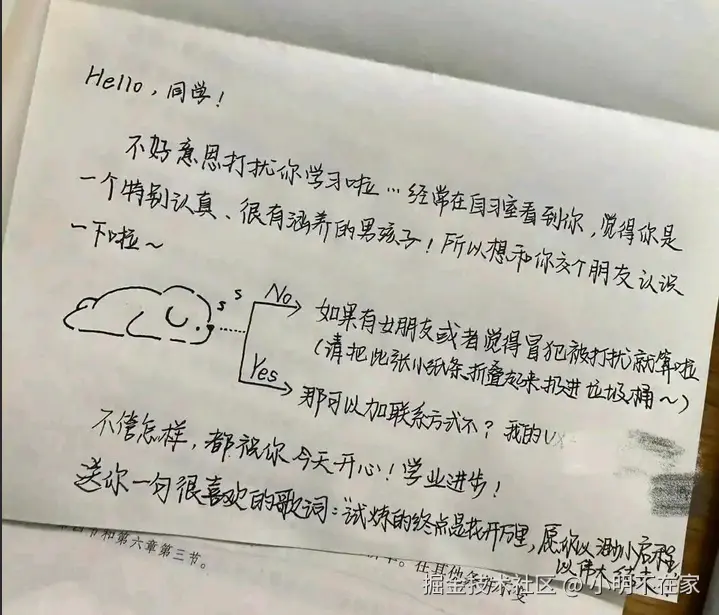 Hello，同学！
不好意思打扰你学习啦…经常在自习室看到你，觉得你是
一个特别认真、很有涵养的男孩子！所以想和你交个朋友认识
一下啦～
s s
No
如果有女朋友或者觉得冒犯被打扰就算啦
（请把此张小纸条折叠起来扔进垃圾桶～）
Yes
那可以加联系方式不？我的V
不管怎样，都祝你今天开心！学业进步！
送你一句很喜欢的歌词：“试炼的终点是花开万里，愿你以渺小启程
以伟大结
和第六章第三节。
在其他
掘金技术社区 @ 小明不在家